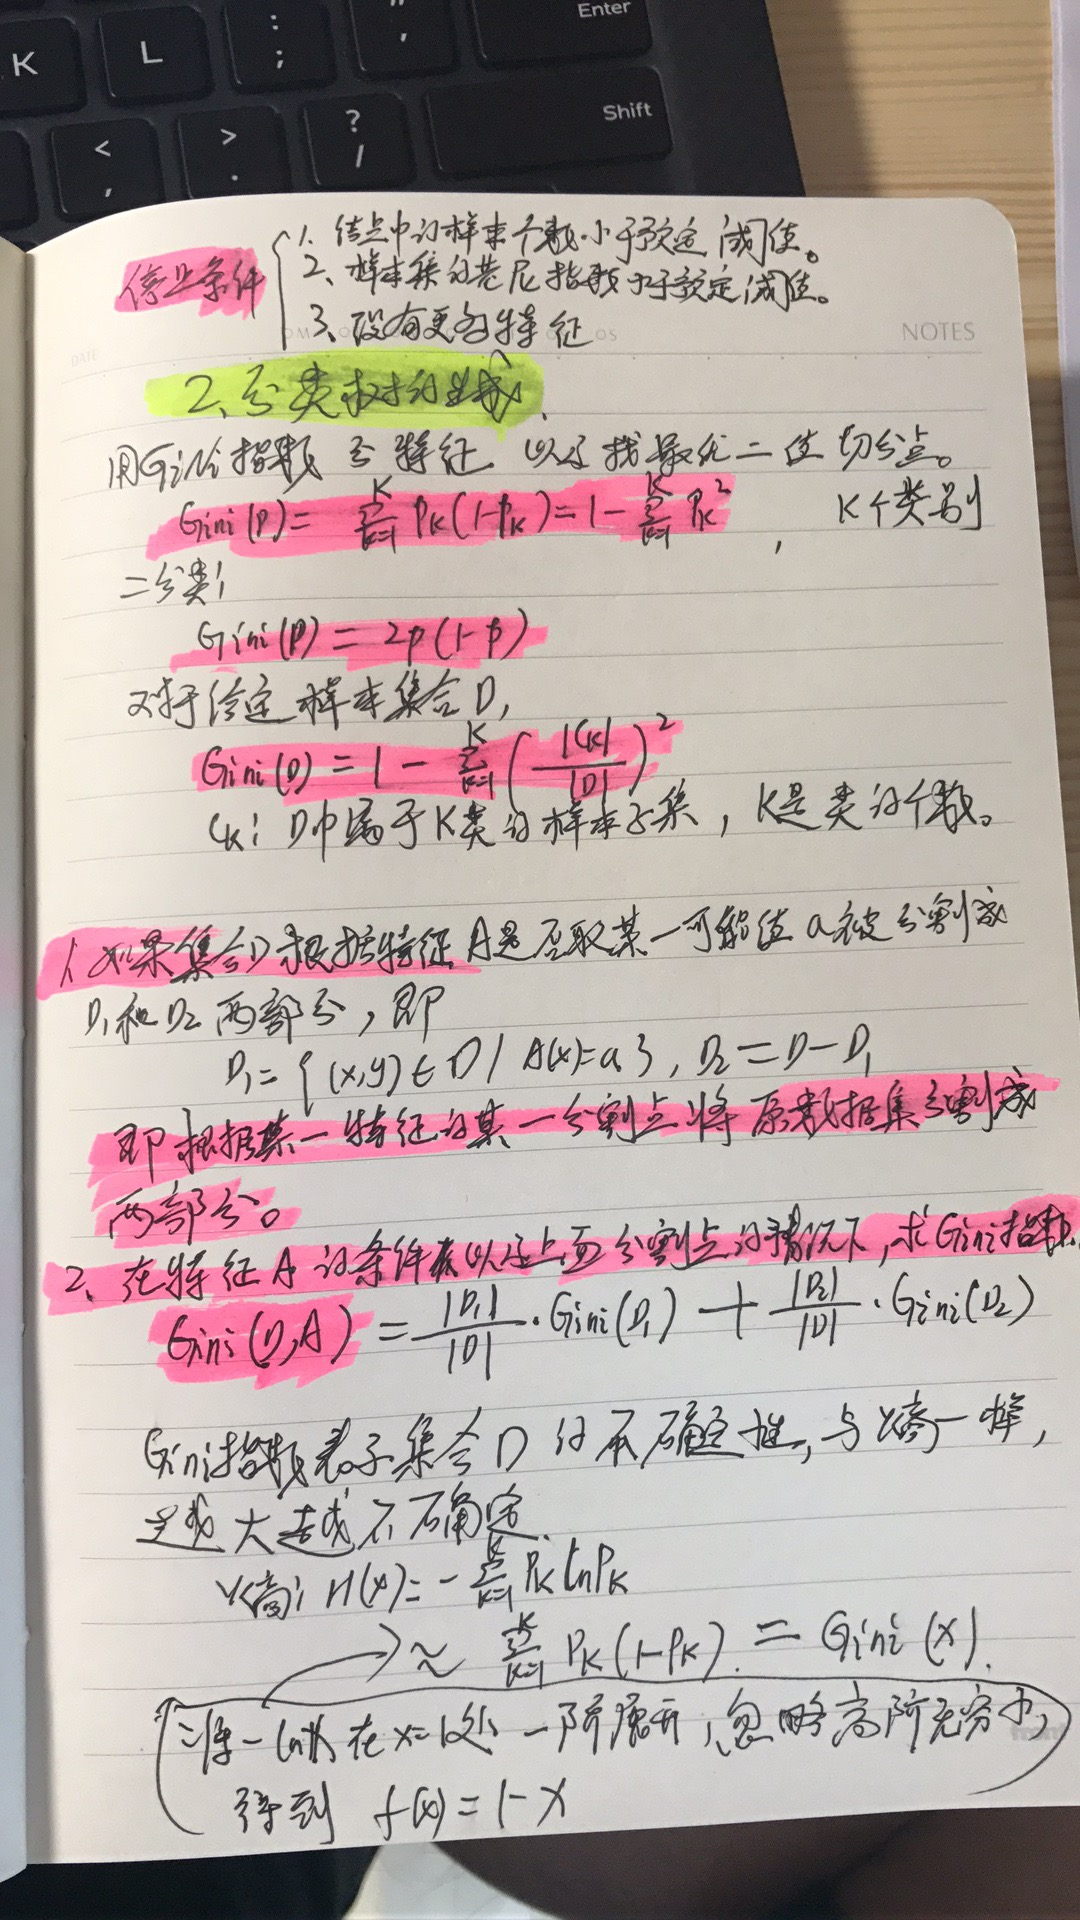 Enter
K
L
:
;
"
'
Shift
<
,
>
.
?
/
停止条件
1. 结点中的样本个数小于预定阈值。
2、样本集的基尼指数小于预定阈值。
3、没有更多特征
NOTES
DATE
2、分类树的生成
用Gini指数分特征,以及找最优二值切分点。
Gini(P) = Σ_{k=1}^{K} P_K(1-P_K) = 1 - Σ_{k=1}^{K} P_K², K个类别
二分类:
Gini(P) = 2p(1-p)
对于给定样本集合D,
Gini(D) = 1 - Σ_{k=1}^{K} (|C_K|/|D|)²
C_K: D中属于K类的样本子集,K是类的个数。
1、如果集合D根据特征A是否取某一可能值a被分割成
D₁和D₂两部分,即
D₁ = {(x,y)∈D | A(x)=a}, D₂ = D-D₁
即根据某一特征的某一分割点将原数据集分割成
两部分。
2、在特征A的条件以及上面分割点的情况下,求Gini指数.
Gini(D,A) = |D₁|/|D| · Gini(D₁) + |D₂|/|D| · Gini(D₂)
Gini指数表示集合D的不确定性,与熵一样,
越大越不确定.
熵: H(x) = - Σ_{k=1}^{K} P_K ln P_K
≈ Σ_{k=1}^{K} P_K(1-P_K) = Gini(x).
-lnx在x=1处一阶展开,忽略高阶无穷小,
得到 f(x) = 1-x